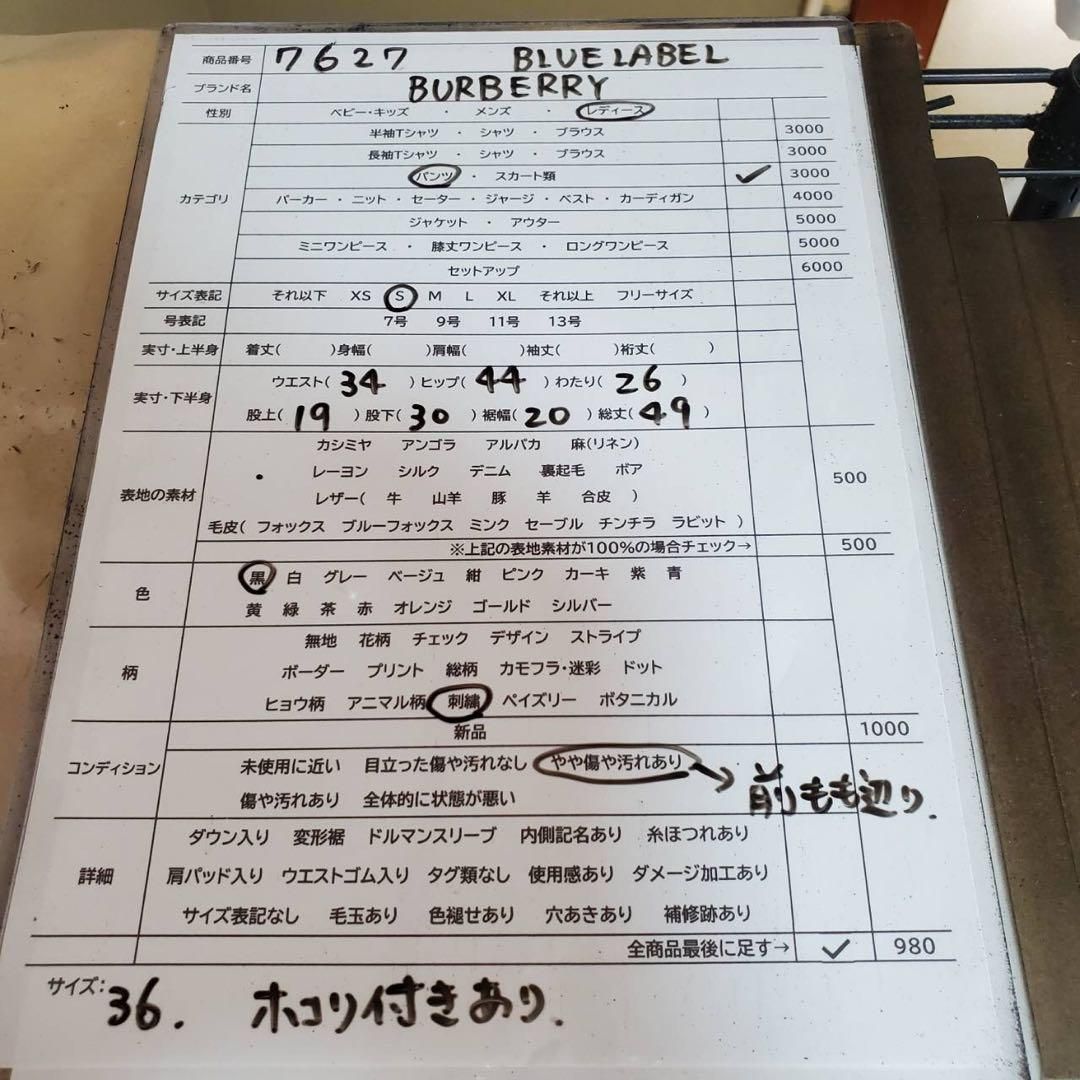 商品番号 7627 BLUE LABEL
ブランド名 BURBERRY
性別 ベビー・キッズ ・ メンズ ・ レディース
半袖Tシャツ ・ シャツ ・ ブラウス 3000
長袖Tシャツ ・ シャツ ・ ブラウス 3000
パンツ ・ スカート類 ✓ 3000
カテゴリ パーカー ・ ニット ・ セーター ・ ジャージ ・ ベスト ・ カーディガン 4000
ジャケット ・ アウター 5000
ミニワンピース ・ 膝丈ワンピース ・ ロングワンピース 5000
セットアップ 6000
サイズ表記 それ以下 XS S M L XL それ以上 フリーサイズ
号表記 7号 9号 11号 13号
実寸・上半身 着丈( )身幅( )肩幅( )袖丈( )裄丈( )
実寸・下半身 ウエスト( 34 )ヒップ( 44 )わたり( 26 )
股上( 19 )股下( 30 )裾幅( 20 )総丈( 49 )
カシミヤ アンゴラ アルパカ 麻(リネン)
レーヨン シルク デニム 裏起毛 ボア 500
表地の素材 レザー( 牛 山羊 豚 羊 合皮 )
毛皮( フォックス ブルーフォックス ミンク セーブル チンチラ ラビット )
※上記の表地素材が100%の場合チェック→ 500
色 黒 白 グレー ベージュ 紺 ピンク カーキ 紫 青
黄 緑 茶 赤 オレンジ ゴールド シルバー
無地 花柄 チェック デザイン ストライプ
柄 ボーダー プリント 総柄 カモフラ・迷彩 ドット
ヒョウ柄 アニマル柄 刺繍 ペイズリー ボタニカル
新品 1000
コンディション 未使用に近い 目立った傷や汚れなし やや傷や汚れあり → 前もも辺り.
傷や汚れあり 全体的に状態が悪い
ダウン入り 変形裾 ドルマンスリーブ 内側記名あり 糸ほつれあり
詳細 肩パッド入り ウエストゴム入り タグ類なし 使用感あり ダメージ加工あり
サイズ表記なし 毛玉あり 色褪せあり 穴あきあり 補修跡あり
全商品最後に足す→ ✓ 980
サイズ: 36. ホコリ付きあり.